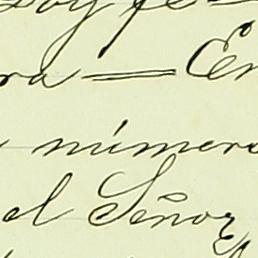 doy fe
ra = En
número
el Señor